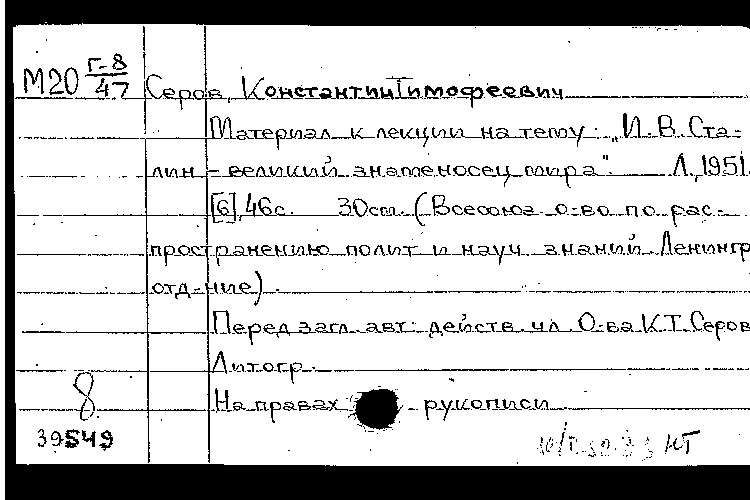 М20 Г-8/47 Серов, Константин Тимофеевич
Материал к лекции на тему: „И.В.Ста-
лин – великий знаменосец мира". Л., 1951.
[6], 46с. 30см. (Всесоюз. о-во по рас-
пространению полит. и науч. знаний. Ленингр.
отд-ние).
Перед загл. авт.: действ. чл. О-ва К.Т. Серов
Литогр.
На правах рукописи
8
39549
НТ